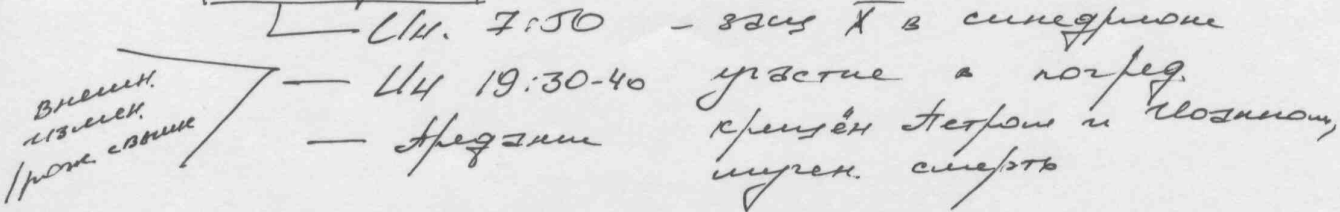 Ин. 7:50 – защ Х в синедрионе
внешн. измен. /рож. свыше
Ин 19:30-40 участие в погред.
Предание крещён Петром и Иоанном,
мучен. смерть